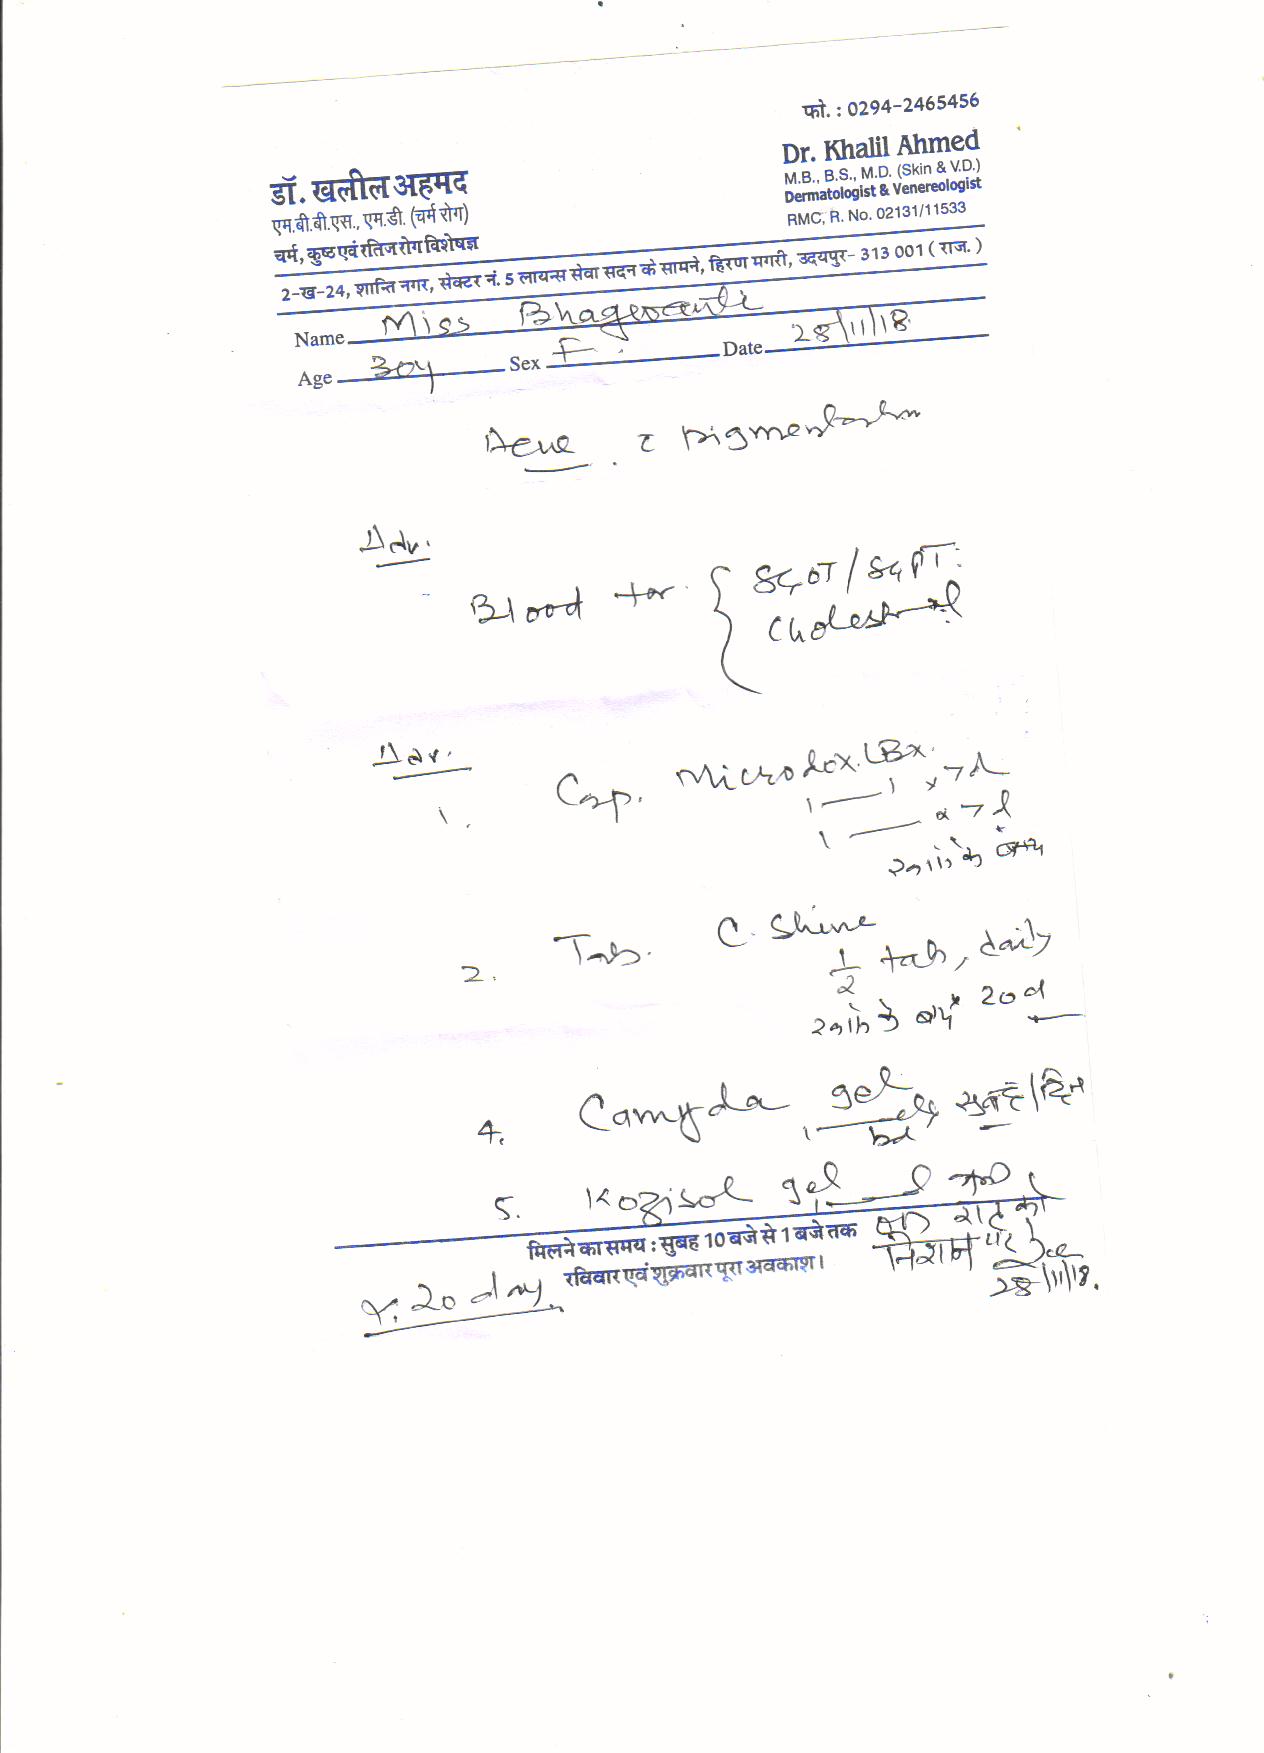 फो. : 0294-2465456
Dr. Khalil Ahmed
M.B., B.S., M.D. (Skin & V.D.)
Dermatologist & Venereologist
RMC, R. No. 02131/11533
डॉ. खलील अहमद
एम.बी.बी.एस., एम.डी. (चर्म रोग)
चर्म, कुष्ठ एवं रतिज रोग विशेषज्ञ
2-ख-24, शान्ति नगर, सेक्टर नं. 5 लायन्स सेवा सदन के सामने, हिरण मगरी, उदयपुर- 313 001 ( राज. )
Name Miss Bhagwanti
Age 30y Sex F. Date 28/11/18
Acne c Pigmentation
Adv.
Blood for { SGOT/SGPT
Cholesterol
Adv.
1. Cap. Microdox LBx.
1 — 1 x 7 d
1 — x 7 d
2. Tab. C. Shine
1/2 tab, daily
20 d
4. Camyda gel सुबह/दिन
bd
5. Kozisol gel
रात को
मिलने का समय : सुबह 10 बजे से 1 बजे तक
निशान पर
रविवार एवं शुक्रवार पूरा अवकाश।
28/11/18.
x. 20 day.